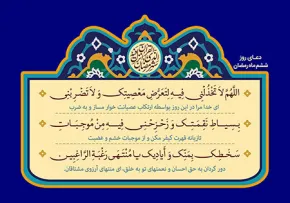 دعـای روز
ششم ماه رمضان
اللَّهُمَّ لاَ تَخْذُلْنِي فِيهِ لِتَعَرُّضِ مَعْصِيَتِكَ وَ لاَ تَضْرِبْنِي
ای خدا مرا در این روز بواسطه ارتکاب عصیانت خوار مساز و به ضرب
بِسِيَاطِ نَقِمَتِكَ وَ زَحْزِحْنِي فِيهِ مِنْ مُوجِبَاتِ
تازیانه قهرت کیفر مکن و از موجبات خشم و غضبت
سَخَطِكَ بِمَنِّكَ وَ أَيَادِيكَ يَا مُنْتَهَى رَغْبَةِ الرَّاغِبِينَ
دور گردان به حق احسان و نعمتهای تو به خلق، ای منتهای آرزوی مشتاقان.